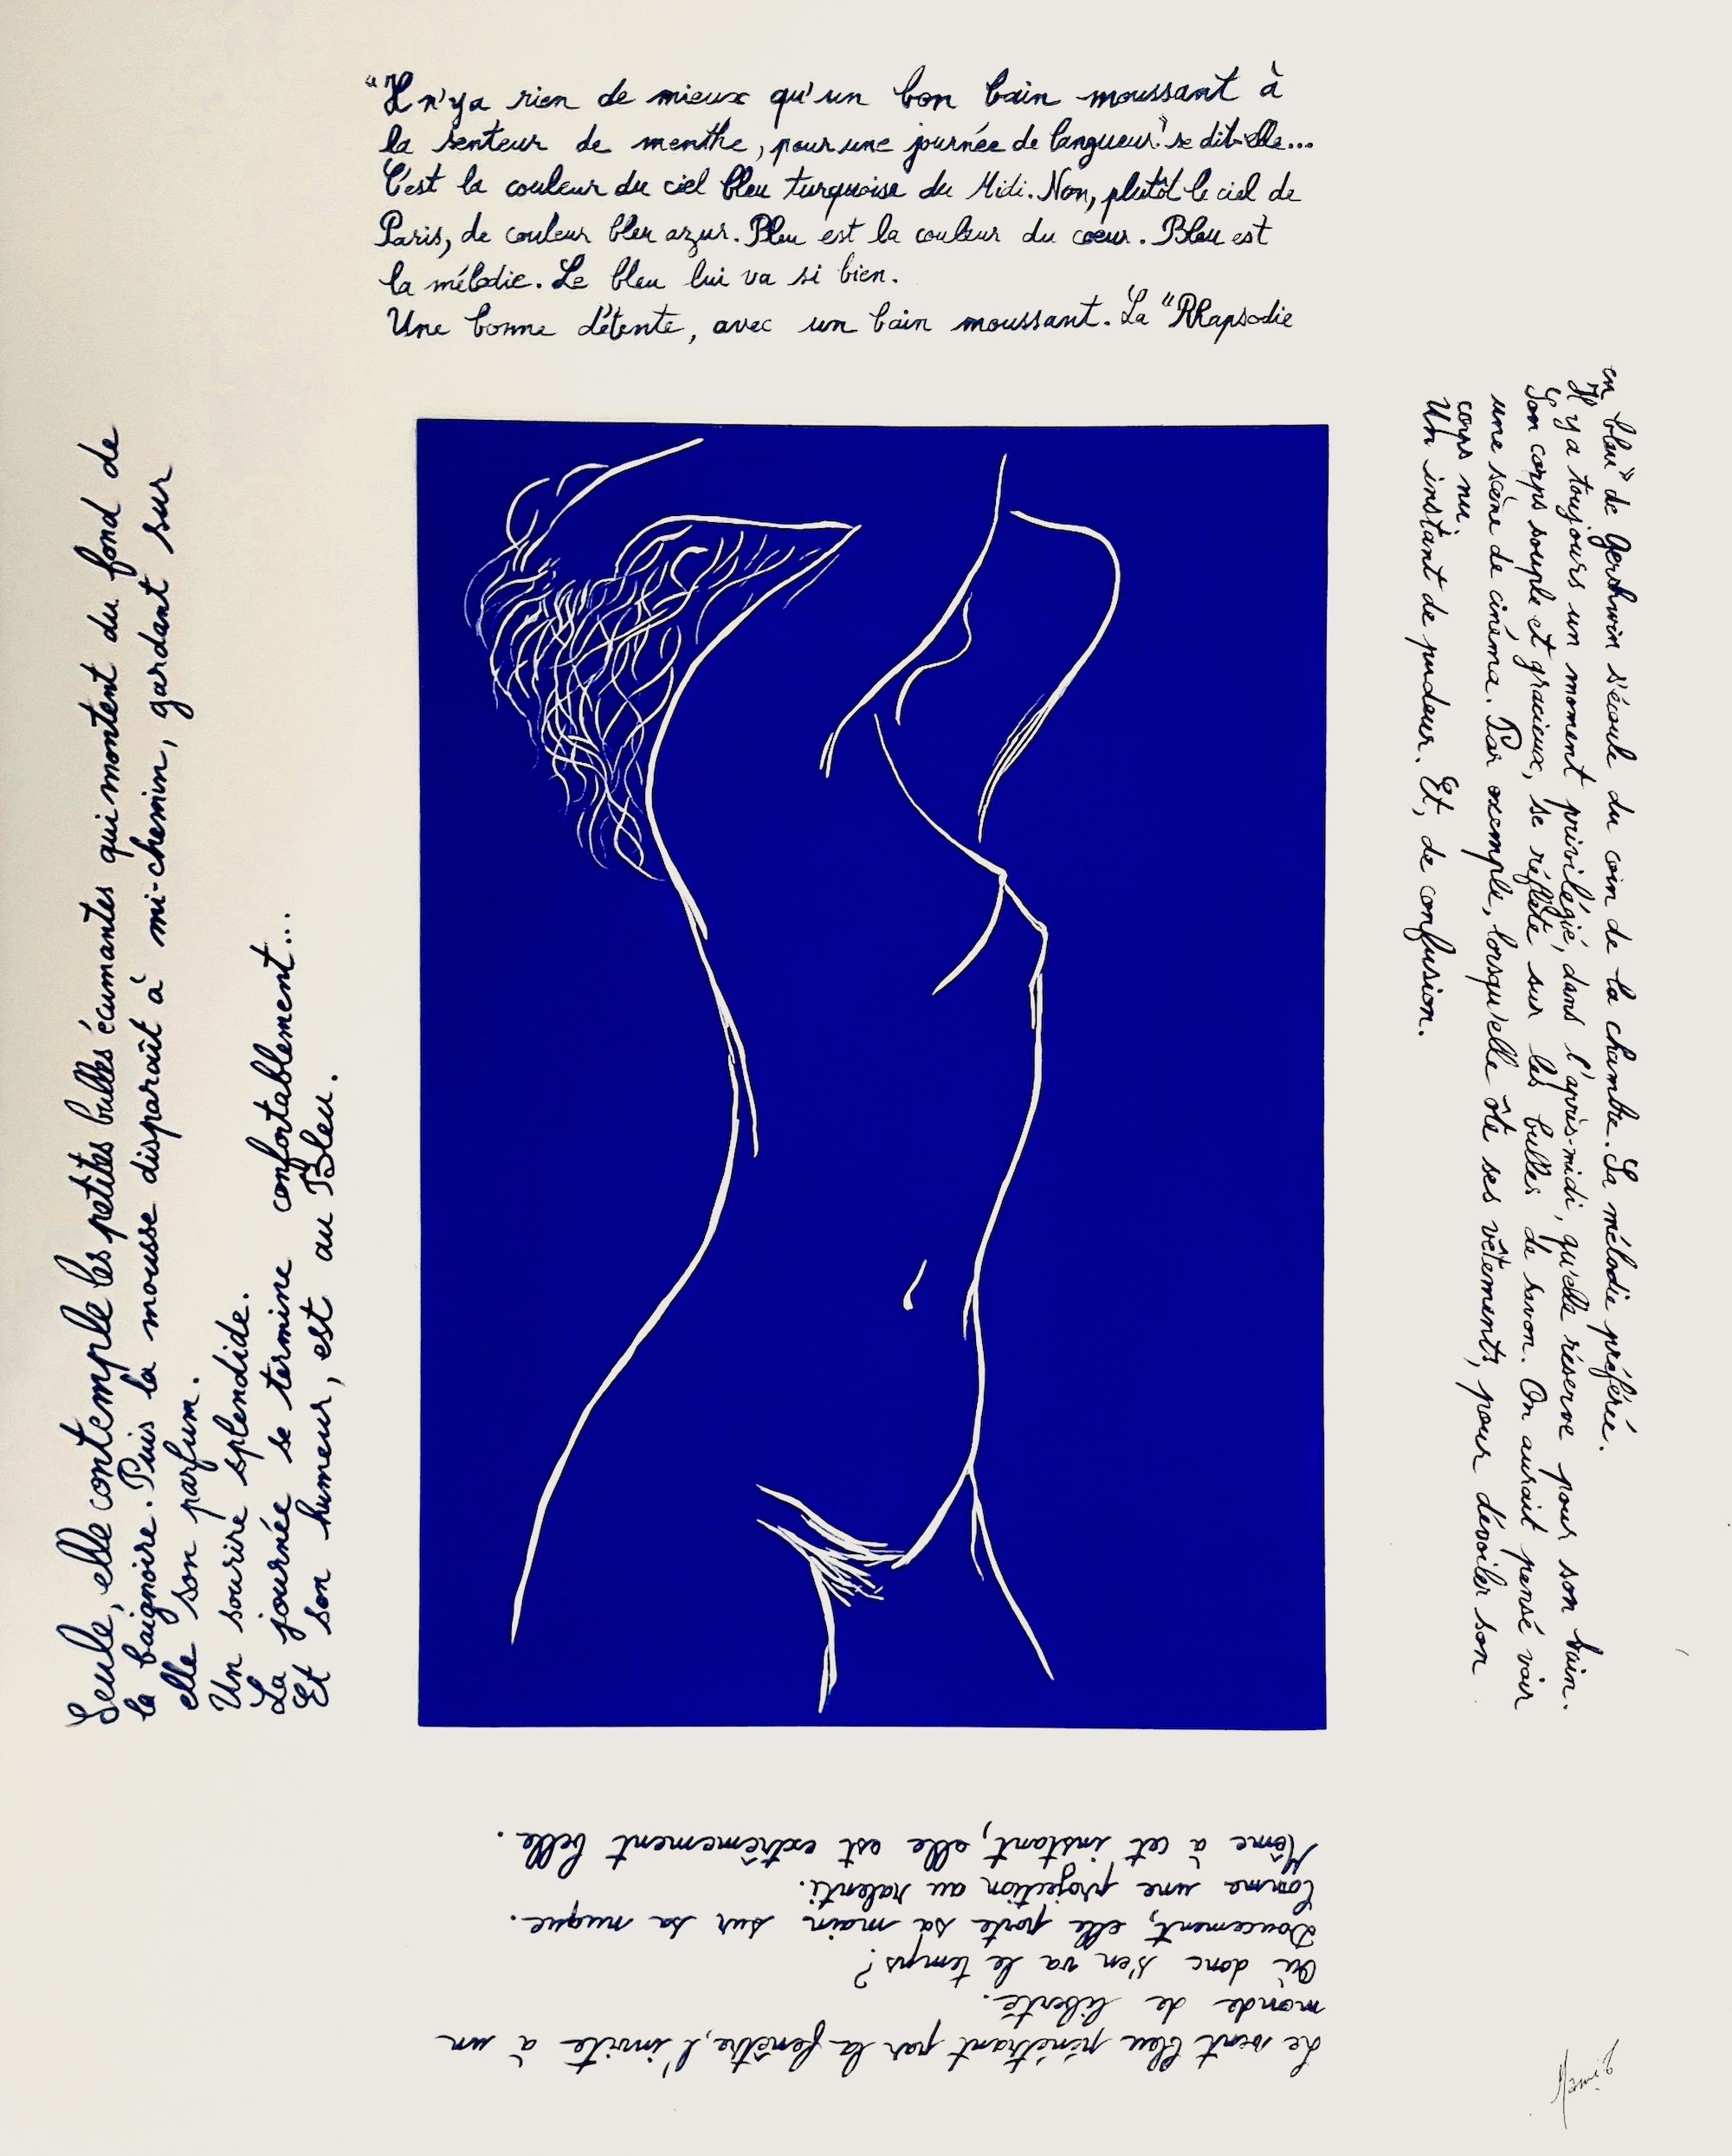 "Il n'y a rien de mieux qu'un bon bain moussant à
la senteur de menthe, pour une journée de langueur!" se dit-elle...
C'est la couleur du ciel bleu turquoise du Midi. Non, plutôt le ciel de
Paris, de couleur bleu azur. Bleu est la couleur du coeur. Bleu est
la mélodie. Le bleu lui va si bien.
Une bonne détente, avec un bain moussant. La "Rhapsodie
en bleu" de Gershwin s'écoule du coin de la chambre. Sa mélodie préférée.
Il y a toujours un moment privilégié, dans l'après-midi, qu'elle réserve pour son bain.
Son corps souple et gracieux, se reflète sur les bulles de savon. On aurait pensé voir
une scène de cinéma. Par exemple, lorsqu'elle ôte ses vêtements, pour dévoiler son
corps nu.
Un instant de pudeur. Et, de confusion.
Le vent bleu pénétrant par la fenêtre, l'invite à un
monde de liberté.
Où donc s'en va le temps?
Doucement, elle porte sa main sur sa nuque.
Comme une projection au ralenti.
Même à cet instant, elle est extrêmement belle.
Seule, elle contemple les petites bulles écumantes qui montent du fond de
la baignoire. Puis la mousse disparaît à mi-chemin, gardant sur
elle son parfum.
Un sourire splendide.
La journée se termine confortablement...
Et son humeur, est au Bleu.